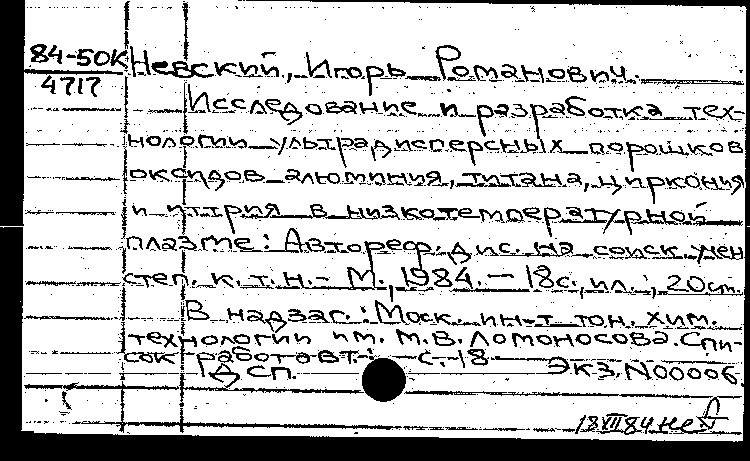 84-50К Невский, Игорь Романович.
4717
Исследование и разработка тех-
нологии ультрадисперсных порошков
оксидов алюминия, титана, циркония
и иттрия в низкотемпературной
плазме: Автореф. дис. на соиск. учен
степ. к. т. н. - М., 1984. - 18с., ил.; 20см.
В надзаг.: Моск. ин-т тон. хим.
технологии им. М.В. Ломоносова. Спи-
сок работ авт.: с.-18
ДСП. Экз. N00006.
18 XII 84